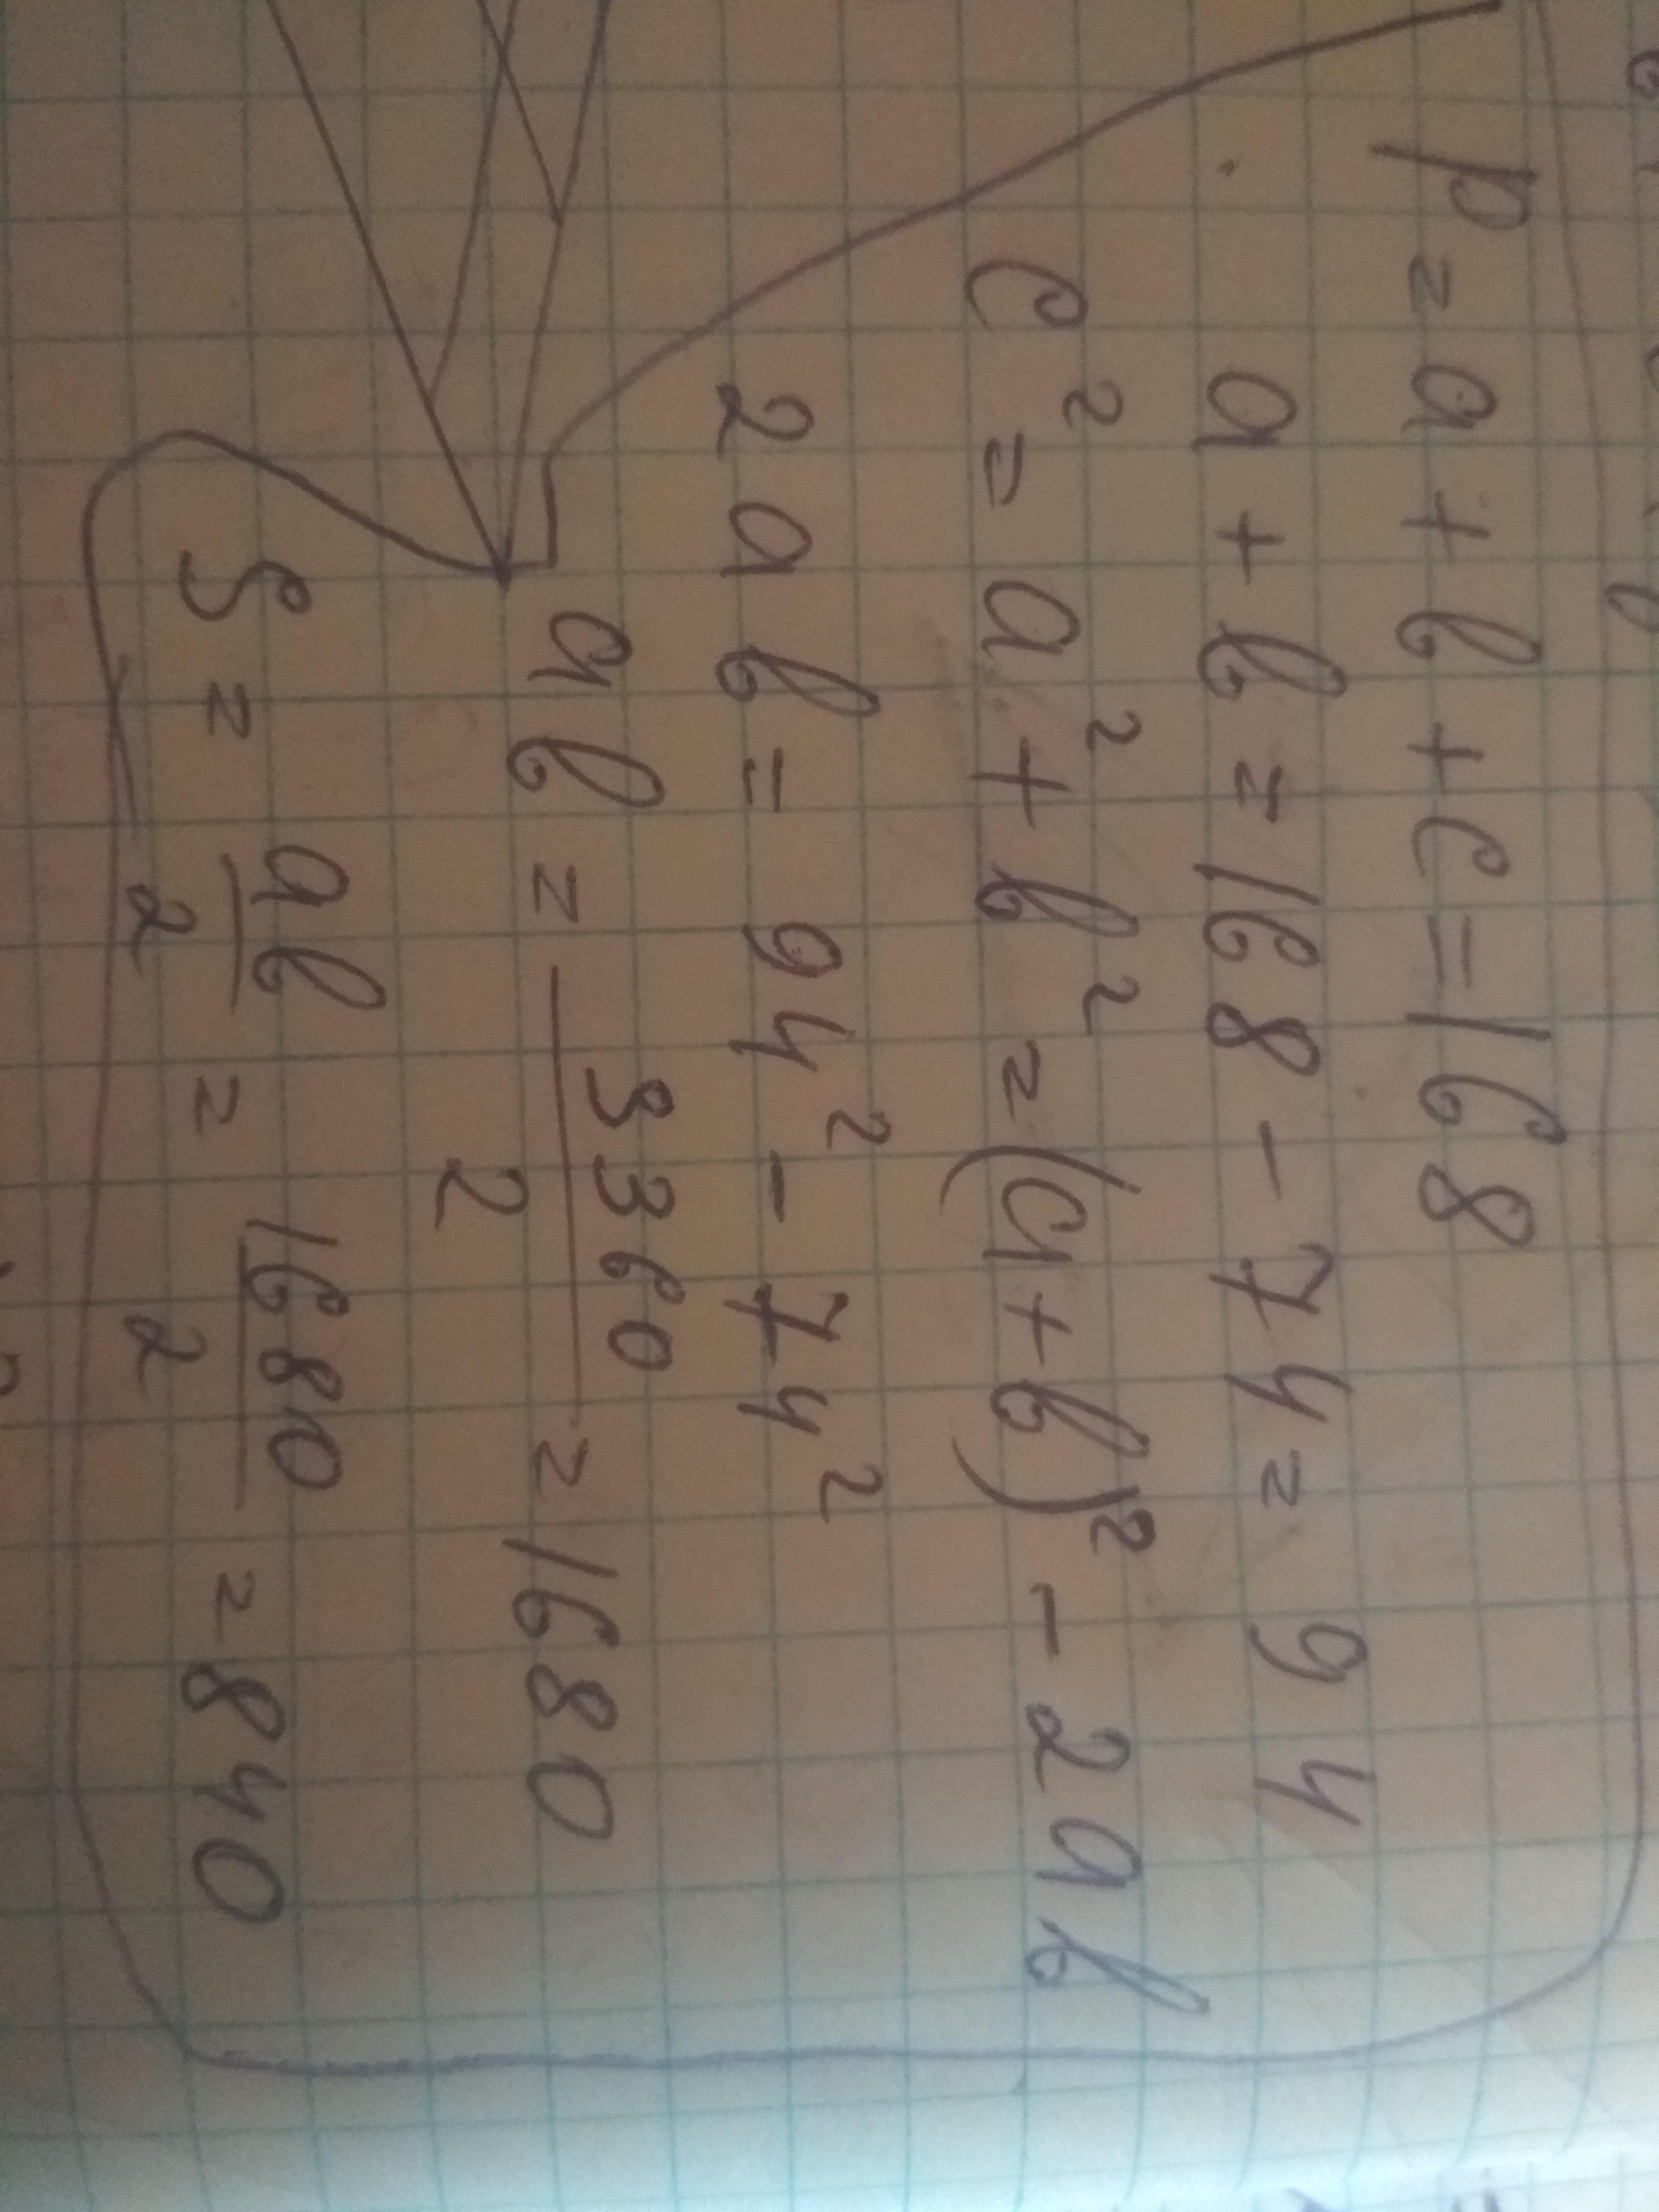 p = a + b + c = 168
a + b = 168 - 74 = 94
c² = a² + b² = (a + b)² - 2ab
2ab = 94² - 74²
ab = 3360/2 = 1680
S = ab/2 = 1680/2 = 840